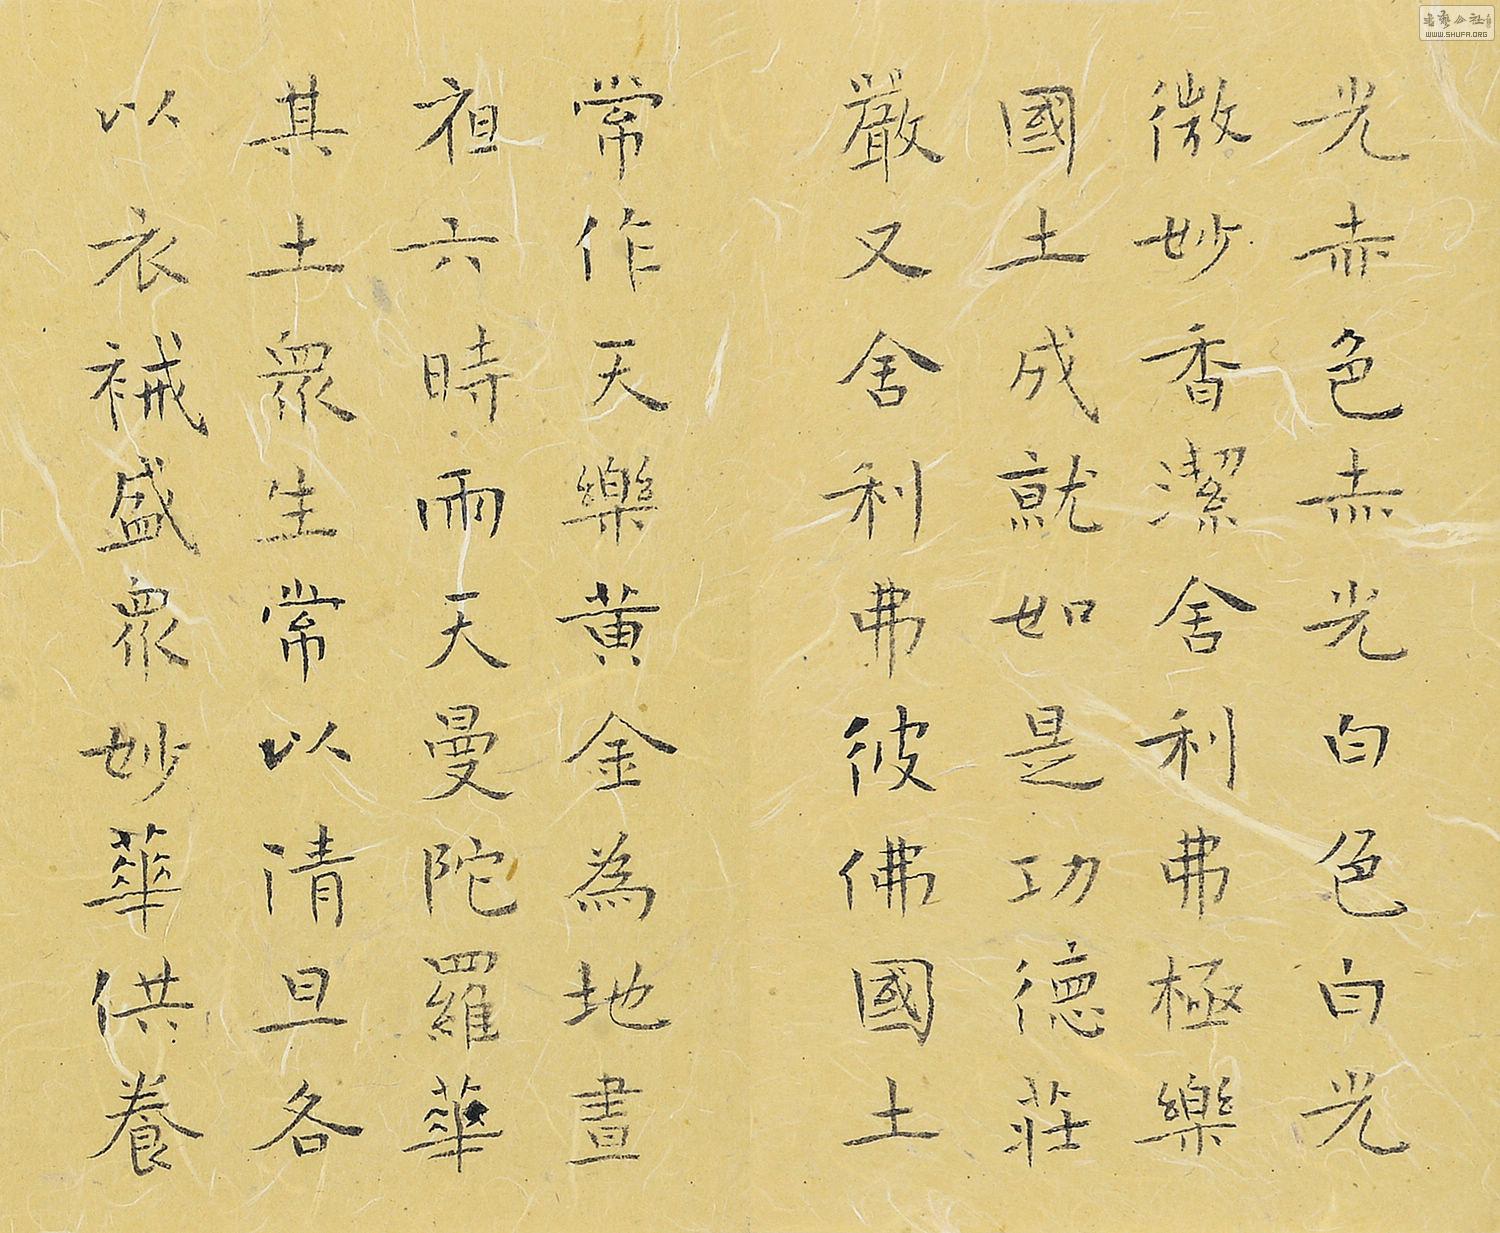 光赤色赤光白色白光
微妙香潔舍利弗極樂
國土成就如是功德莊
嚴又舍利弗彼佛國土
常作天樂黃金為地晝
祖六時雨天曼陀羅華
其土眾生常以清旦各
以衣裓盛眾妙華供養
书艺公社
WWW.SHUFA.ORG